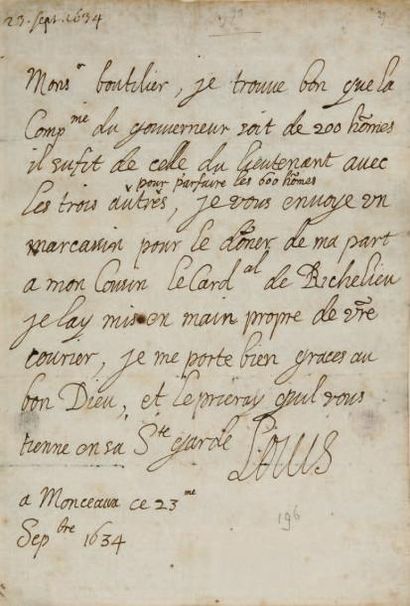 23. Sept. 1634
Mons.r boutilier, je trouve bon que la
Comp.me du gouverneur soit de 200 hõmes
il sufit de celle du lieutenant avec
pour parfaire les 600 hõmes
les trois autres, je vous envoye un
marcassin pour le dõner de ma part
a mon Cousin le Card.al de Richelieu
je lay mis en main propre de vr̃e
courier, je me porte bien graces au
bon Dieu, et le prieray quil vous
tienne en sa S.te garde Louis
a Monceaux ce 23.me
Sep.bre 1634
196